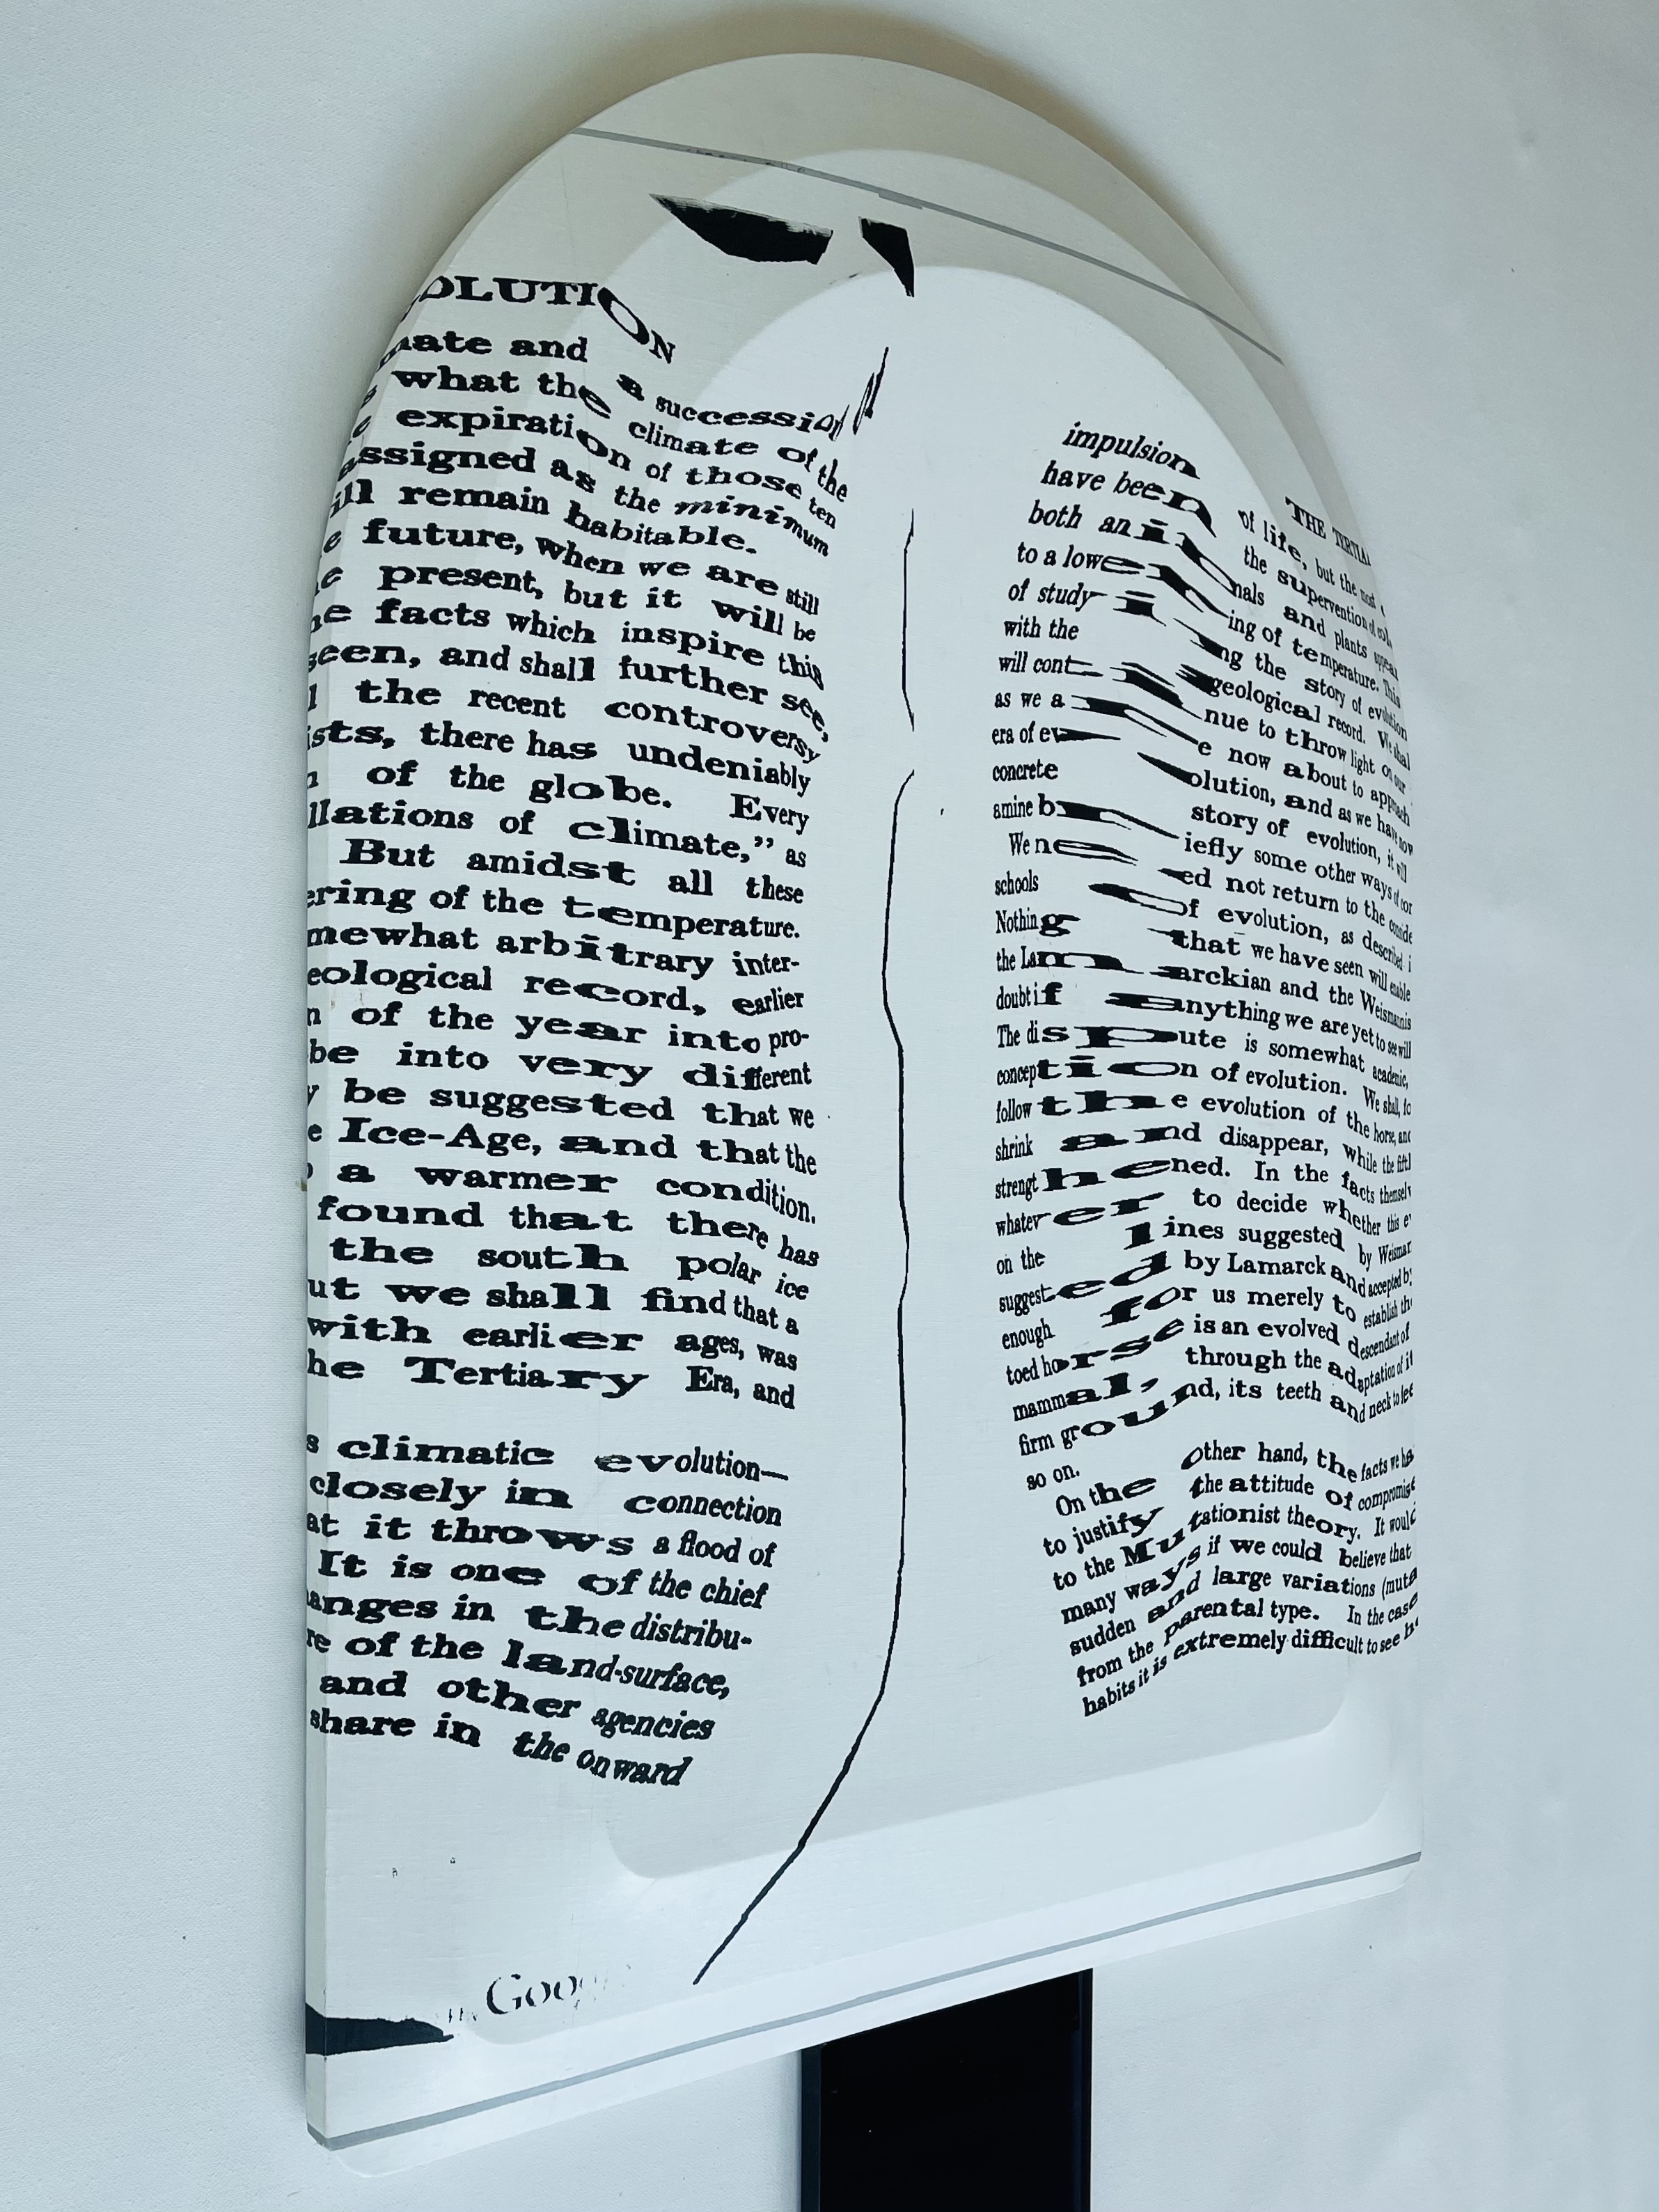 OLUTION
and a succession of
what the climate of the
expiration of those ten
assigned as the minimum
ill remain habitable.
future, when we are still
present, but it will be
facts which inspire this
seen, and shall further see,
the recent controversy
ists, there has undeniably
of the globe. Every
llations of climate,” as
But amidst all these
ering of the temperature.
mewhat arbitrary inter-
eological record, earlier
n of the year into pro-
be into very different
y be suggested that we
e Ice-Age, and that the
a warmer condition.
found that there has
the south polar ice
ut we shall find that a
with earlier ages, was
he Tertiary Era, and
s climatic evolution—
closely in connection
at it throws a flood of
It is one of the chief
anges in the distribu-
re of the land-surface,
and other agencies
share in the onward
Goo
THE TERTIA
impulsion of life, but the most
have been the supervention of
both animals and plants appea
to a lowering of temperature. This
of studying the story of evolution
with the geological record. We shal
will continue to throw light on our
as we are now about to approach
era of evolution, and as we have now
concrete story of evolution, it will
amine briefly some other ways of con
We need not return to the conside
schools of evolution, as described i
Nothing that we have seen will enable
the Lamarckian and the Weismannis
doubt if anything we are yet to see will
The dispute is somewhat academic,
conception of evolution. We shall, fo
follow the evolution of the horse, and
shrink and disappear, while the fifth
strengthened. In the facts themselv
whatever to decide whether this e
on the lines suggested by Weisman
suggested by Lamarck and accepted by
enough for us merely to establish the
toed horse is an evolved descendant of
mammal, through the adaptation of it
firm ground, its teeth and neck to
so on.
On the other hand, the facts we ha
to justify the attitude of compromise
to the Mutationist theory. It would
many ways if we could believe that
sudden and large variations (muta
from the parental type. In the case
habits it is extremely difficult to see h